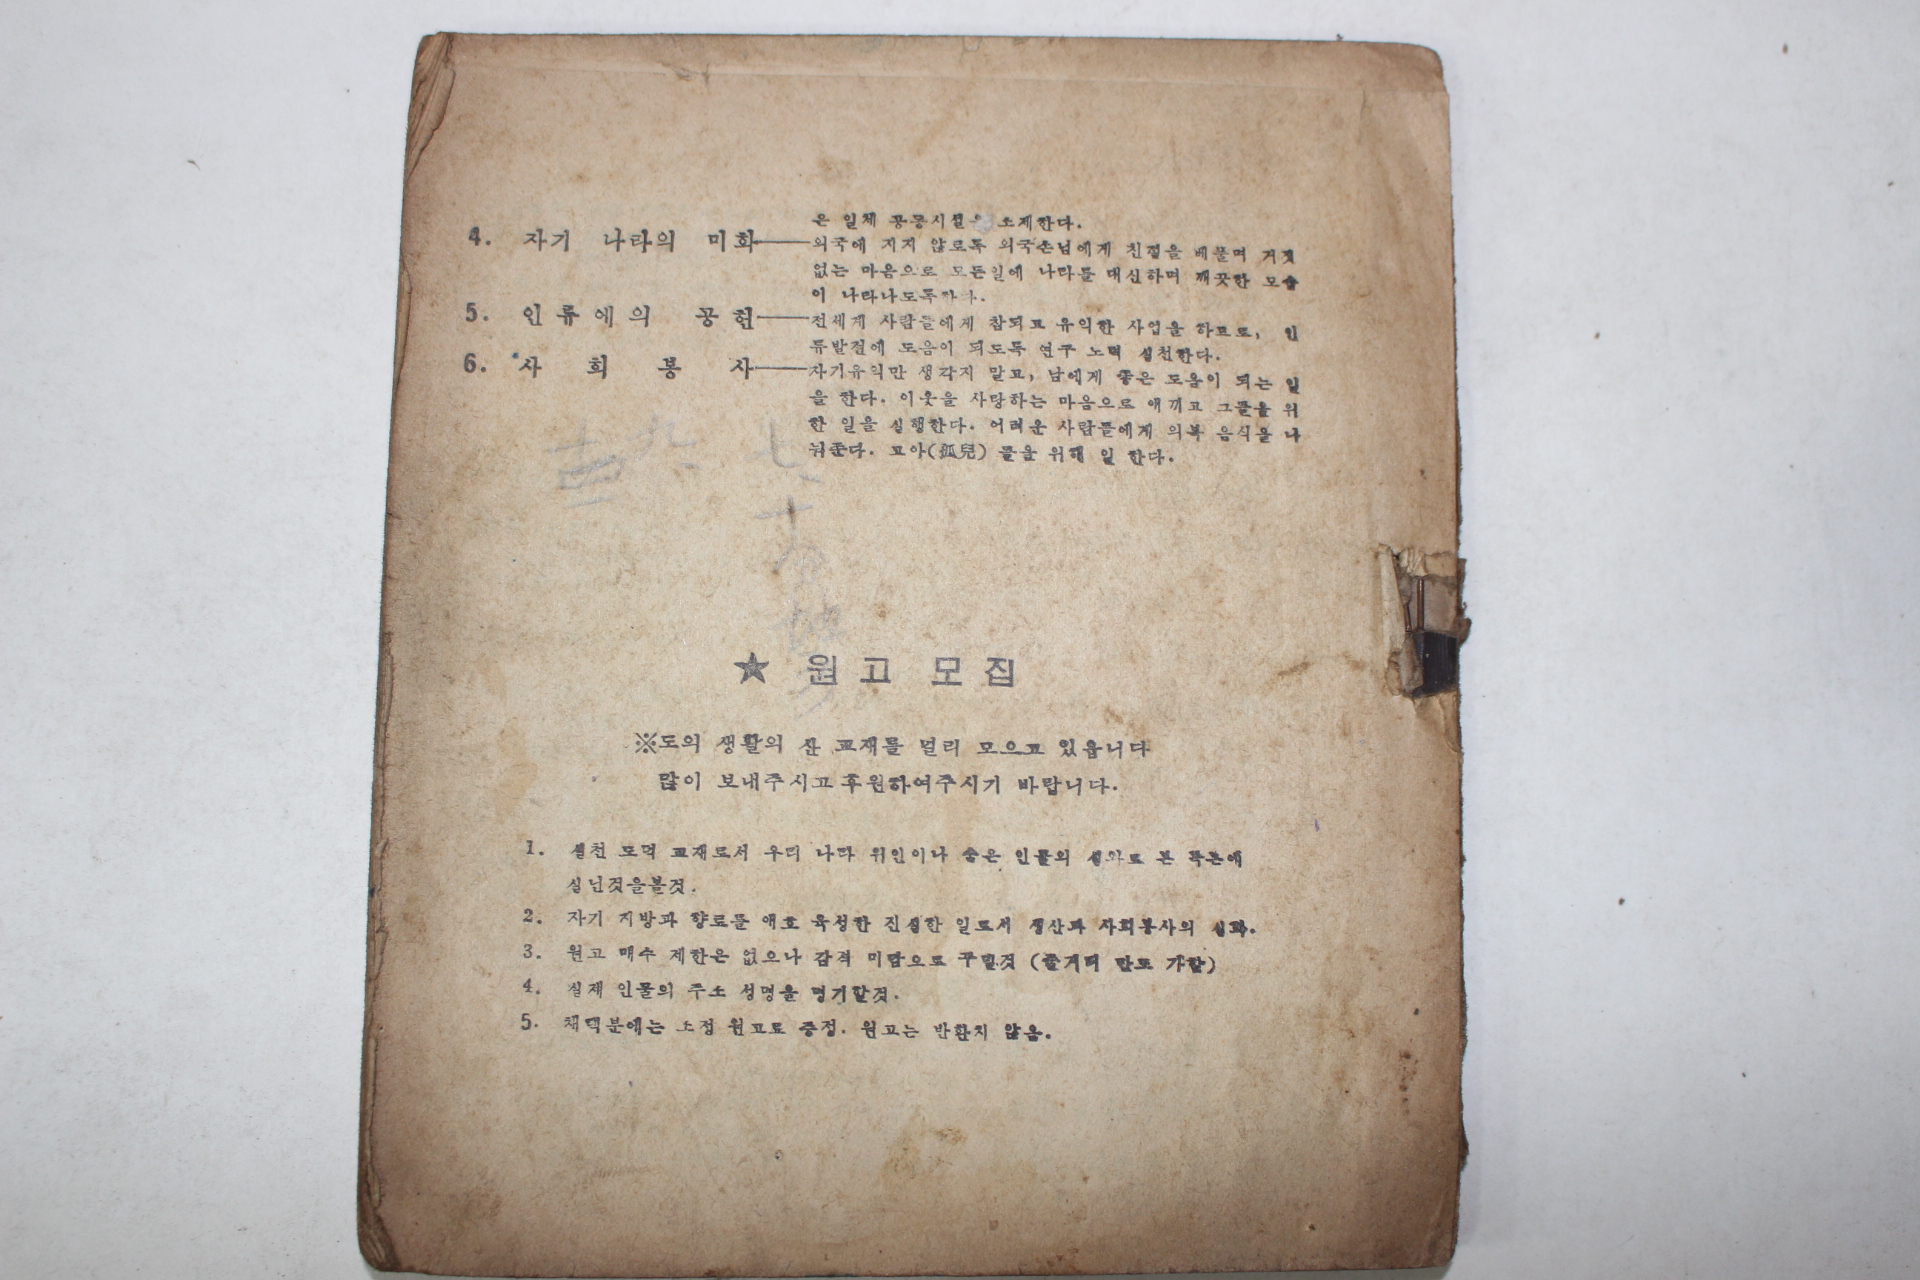 은 일체 공공시설을 소제한다.
4. 자기 나라의 미화――외국에 지지 않로독 외국손님에게 친절을 베풀며 거짓
없는 마음으로 모든일에 나라를 대신하며 깨끗한 모습
이 나타나도독하다.
5. 인류에의 공헌――전세계 사람들에게 참되고 유익한 사업을 하고로, 인
류발전에 도음이 되도독 연구 노력 실천한다.
6. 사회봉사――자기유익만 생각지 말고, 남에게 좋은 도움이 되는 일
을 한다. 이웃을 사랑하는 마음으로 애끼고 그들을 위
한 일을 실행한다. 어려운 사람들에게 의복 음식을 나
눠준다. 고아(孤兒) 들을 위해 일 한다.
★ 원고 모집
※도의 생활의 산 교재를 널리 모으고 있읍니다
많이 보내주시고 후원하여주시기 바랍니다.
1. 실천 도덕 교재로서 우리 나라 위인이나 숨은 인물의 실화로 본 독본에
실닌것을볼것.
2. 자기 지방과 향로를 애호 육성한 진실한 일로서 생산과 사회봉사의 실화.
3. 원고 매수 제한은 없으나 감격 미담으로 꾸밀것 (줄거리 만도 가함)
4. 실재 인물의 주소 성명을 명기할것.
5. 채택분에는 소정 원고료 증정. 원고는 반환치 않음.